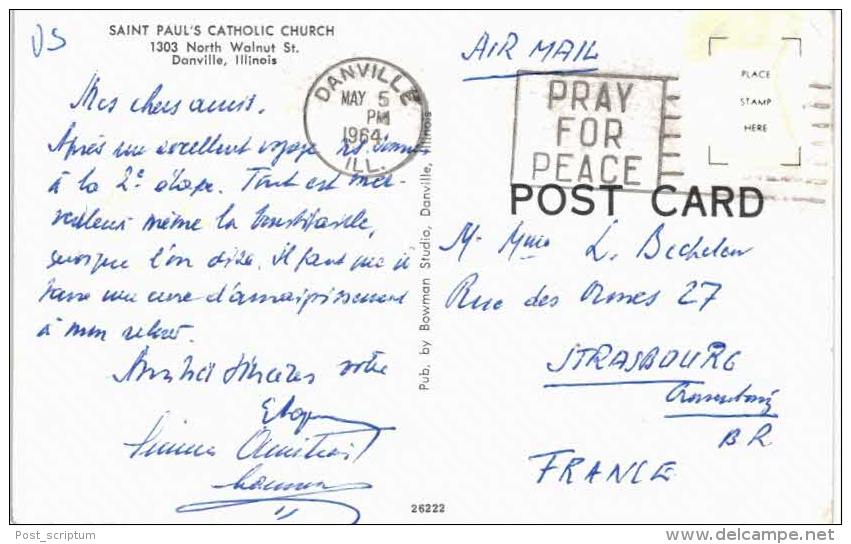 SAINT PAUL'S CATHOLIC CHURCH
1303 North Walnut St.
Danville, Illinois
US
Mes chers amis,
Après un excellent voyage
à la 2e étape. Tout est mer-
veilleux même la boustifaille,
quoique l'on dise. Il faut que je
fasse une cure d'amaigrissement
à mon retour.
Amitiés sincères votre
DANVILLE
MAY 5
PM
1964
ILL.
AIR MAIL
PRAY
FOR
PEACE
PLACE
STAMP
HERE
POST CARD
M. Mme L. Bechelen
Rue des Ormes 27
STRASBOURG
Cronenbourg
BR
FRANCE
Pub. by Bowman Studio, Danville, Illinois
26222
Post_scriptum
www.delcampe.net